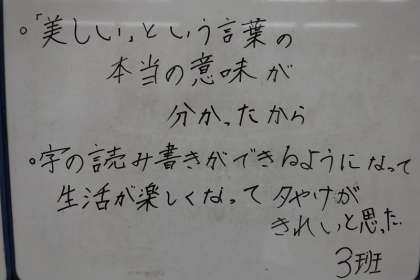 。「美しい」という言葉の
本当の意味が
分かったから
。字の読み書きができるようになって
生活が楽しくなって夕やけが
きれいと思った
3班